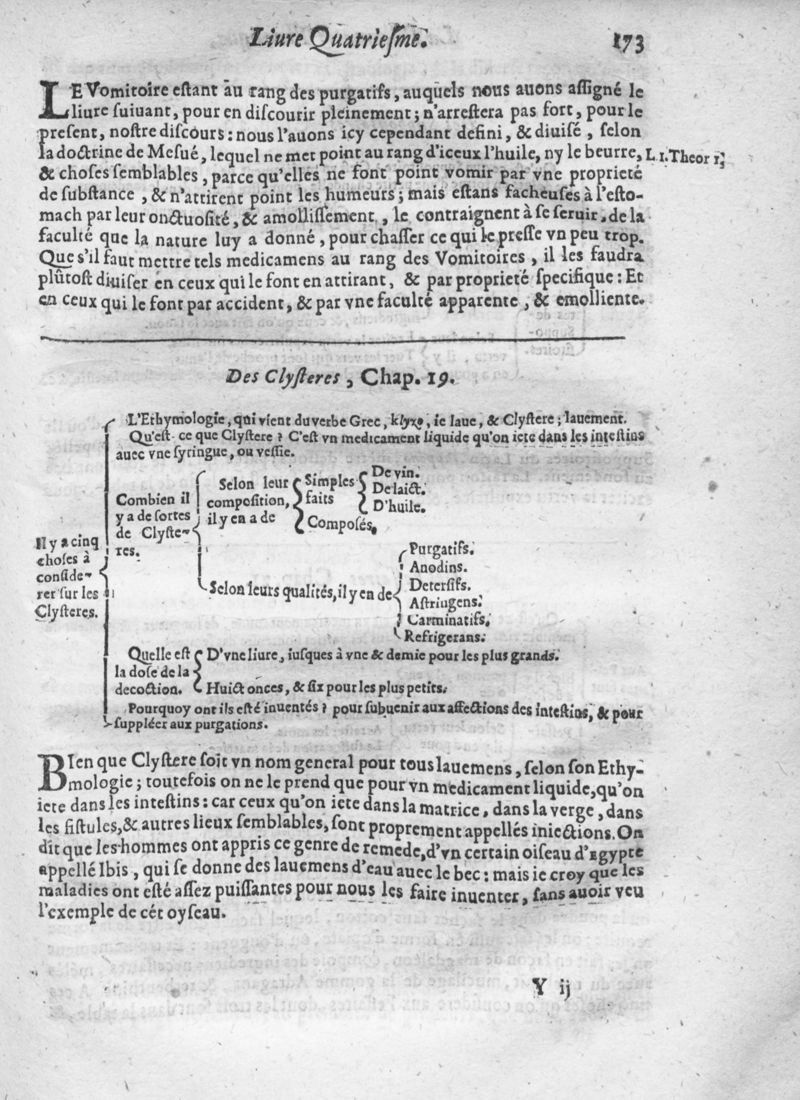 Liure Quatrieſme. 173
LE Vomitoire eſtant au rang des purgatifs, auquels nous auons aſſigné le
liure ſuiuant, pour en diſcourir pleinement; n'arreſtera pas fort, pour le
preſent, noſtre diſcours: nous l'auons icy cependant defini, & diuiſé, ſelon
la doctrine de Meſué, lequel ne met point au rang d'iceux l'huile, ny le beurre, L 1. Theor 1,
& choſes ſemblables, parce qu'elles ne font point vomir par vne proprieté
de ſubſtance, & n'attirent point les humeurs; mais eſtans facheuſes à l'eſto-
mach par leur onctuoſité, & amolliſſement, le contraignent à ſe ſeruir, de la
faculté que la nature luy a donné, pour chaſſer ce qui le preſſe vn peu trop.
Que s'il faut mettre tels medicamens au rang des Vomitoires, il les faudra
plûtoſt diuiſer en ceux qui le font en attirant, & par proprieté ſpecifique: Et
en ceux qui le font par accident, & par vne faculté apparente, & emolliente.
Des Clyſteres, Chap. 19.
L'Ethymologie, qui vient du verbe Grec, klyzo, ie laue, & Clyſtere; lauement.
Qu'eſt ce que Clyſtere? C'eſt vn medicament liquide qu'on iete dans les inteſtins
auec vne ſyringue, ou veſſie.
Il y a cinq
choſes à
conſide-
rer ſur les
Clyſteres.
Combien il
y a de ſortes
de Clyſte-
res.
Selon leur
compoſition,
il y en a de
Simples
faits
De vin.
De laict.
D'huile.
Compoſés,
Selon leurs qualités, il y en de
Purgatifs.
Anodins.
Deterſifs.
Aſtringens.
Carminatifs.
Refrigerans.
Quelle eſt
la doſe de la
decoction.
D'vne liure, iuſques à vne & demie pour les plus grands.
Huict onces, & ſix pour les plus petits.
Pourquoy ont ils eſté inuentés? pour ſubuenir aux affections des inteſtins, & pour
ſuppléer aux purgations.
BIen que Clyſtere ſoit vn nom general pour tous lauemens, ſelon ſon Ethy-
mologie; toutefois on ne le prend que pour vn medicament liquide, qu'on
iete dans les inteſtins: car ceux qu'on iete dans la matrice, dans la verge, dans
les fiſtules, & autres lieux ſemblables, ſont proprement appellés iniections. On
dit que les hommes ont appris ce genre de remede, d'vn certain oiſeau d'Egypte
appellé Ibis, qui ſe donne des lauemens d'eau auec le bec: mais ie croy que les
maladies ont eſté aſſez puiſſantes pour nous les faire inuenter, ſans auoir veu
l'exemple de cét oyſeau.
Y ij